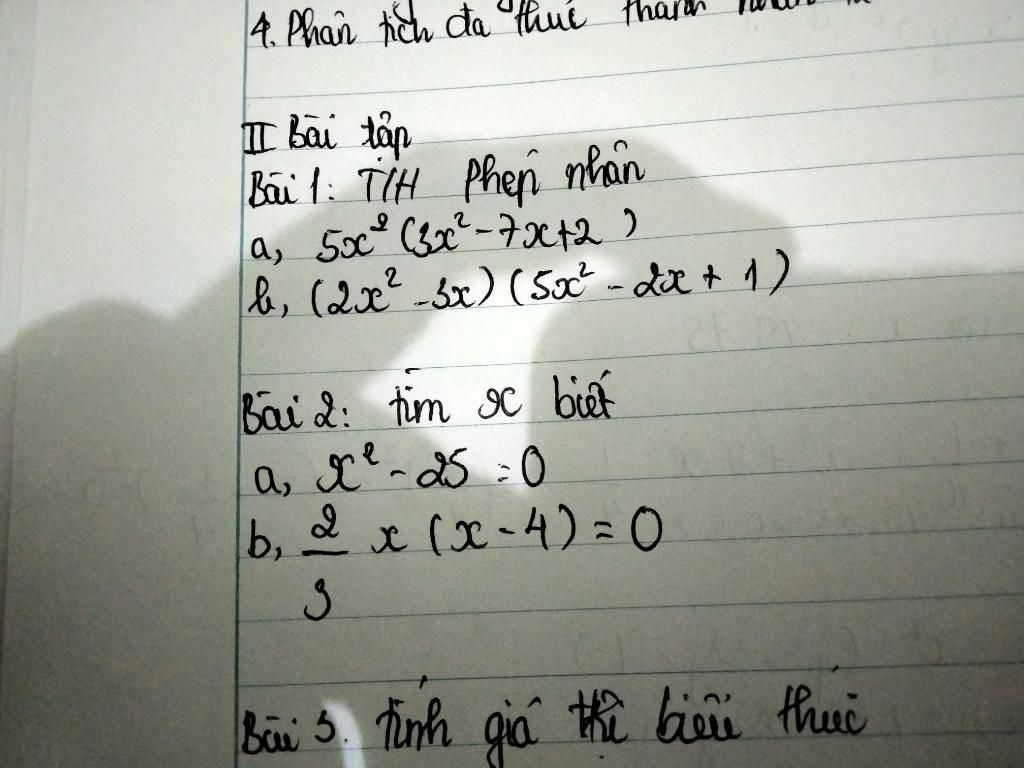 4. Phân tích đa thức thành nhân
II Bài tập
Bài 1: T/H Phép nhân
a, 5x² (3x² - 7x + 2 )
b, (2x² - 3x) (5x² - 2x + 1)
Bài 2: tìm x biết
a, x² - 25 = 0
b, 2/3 x (x - 4) = 0
Bài 3. tính giá thị biểu thức